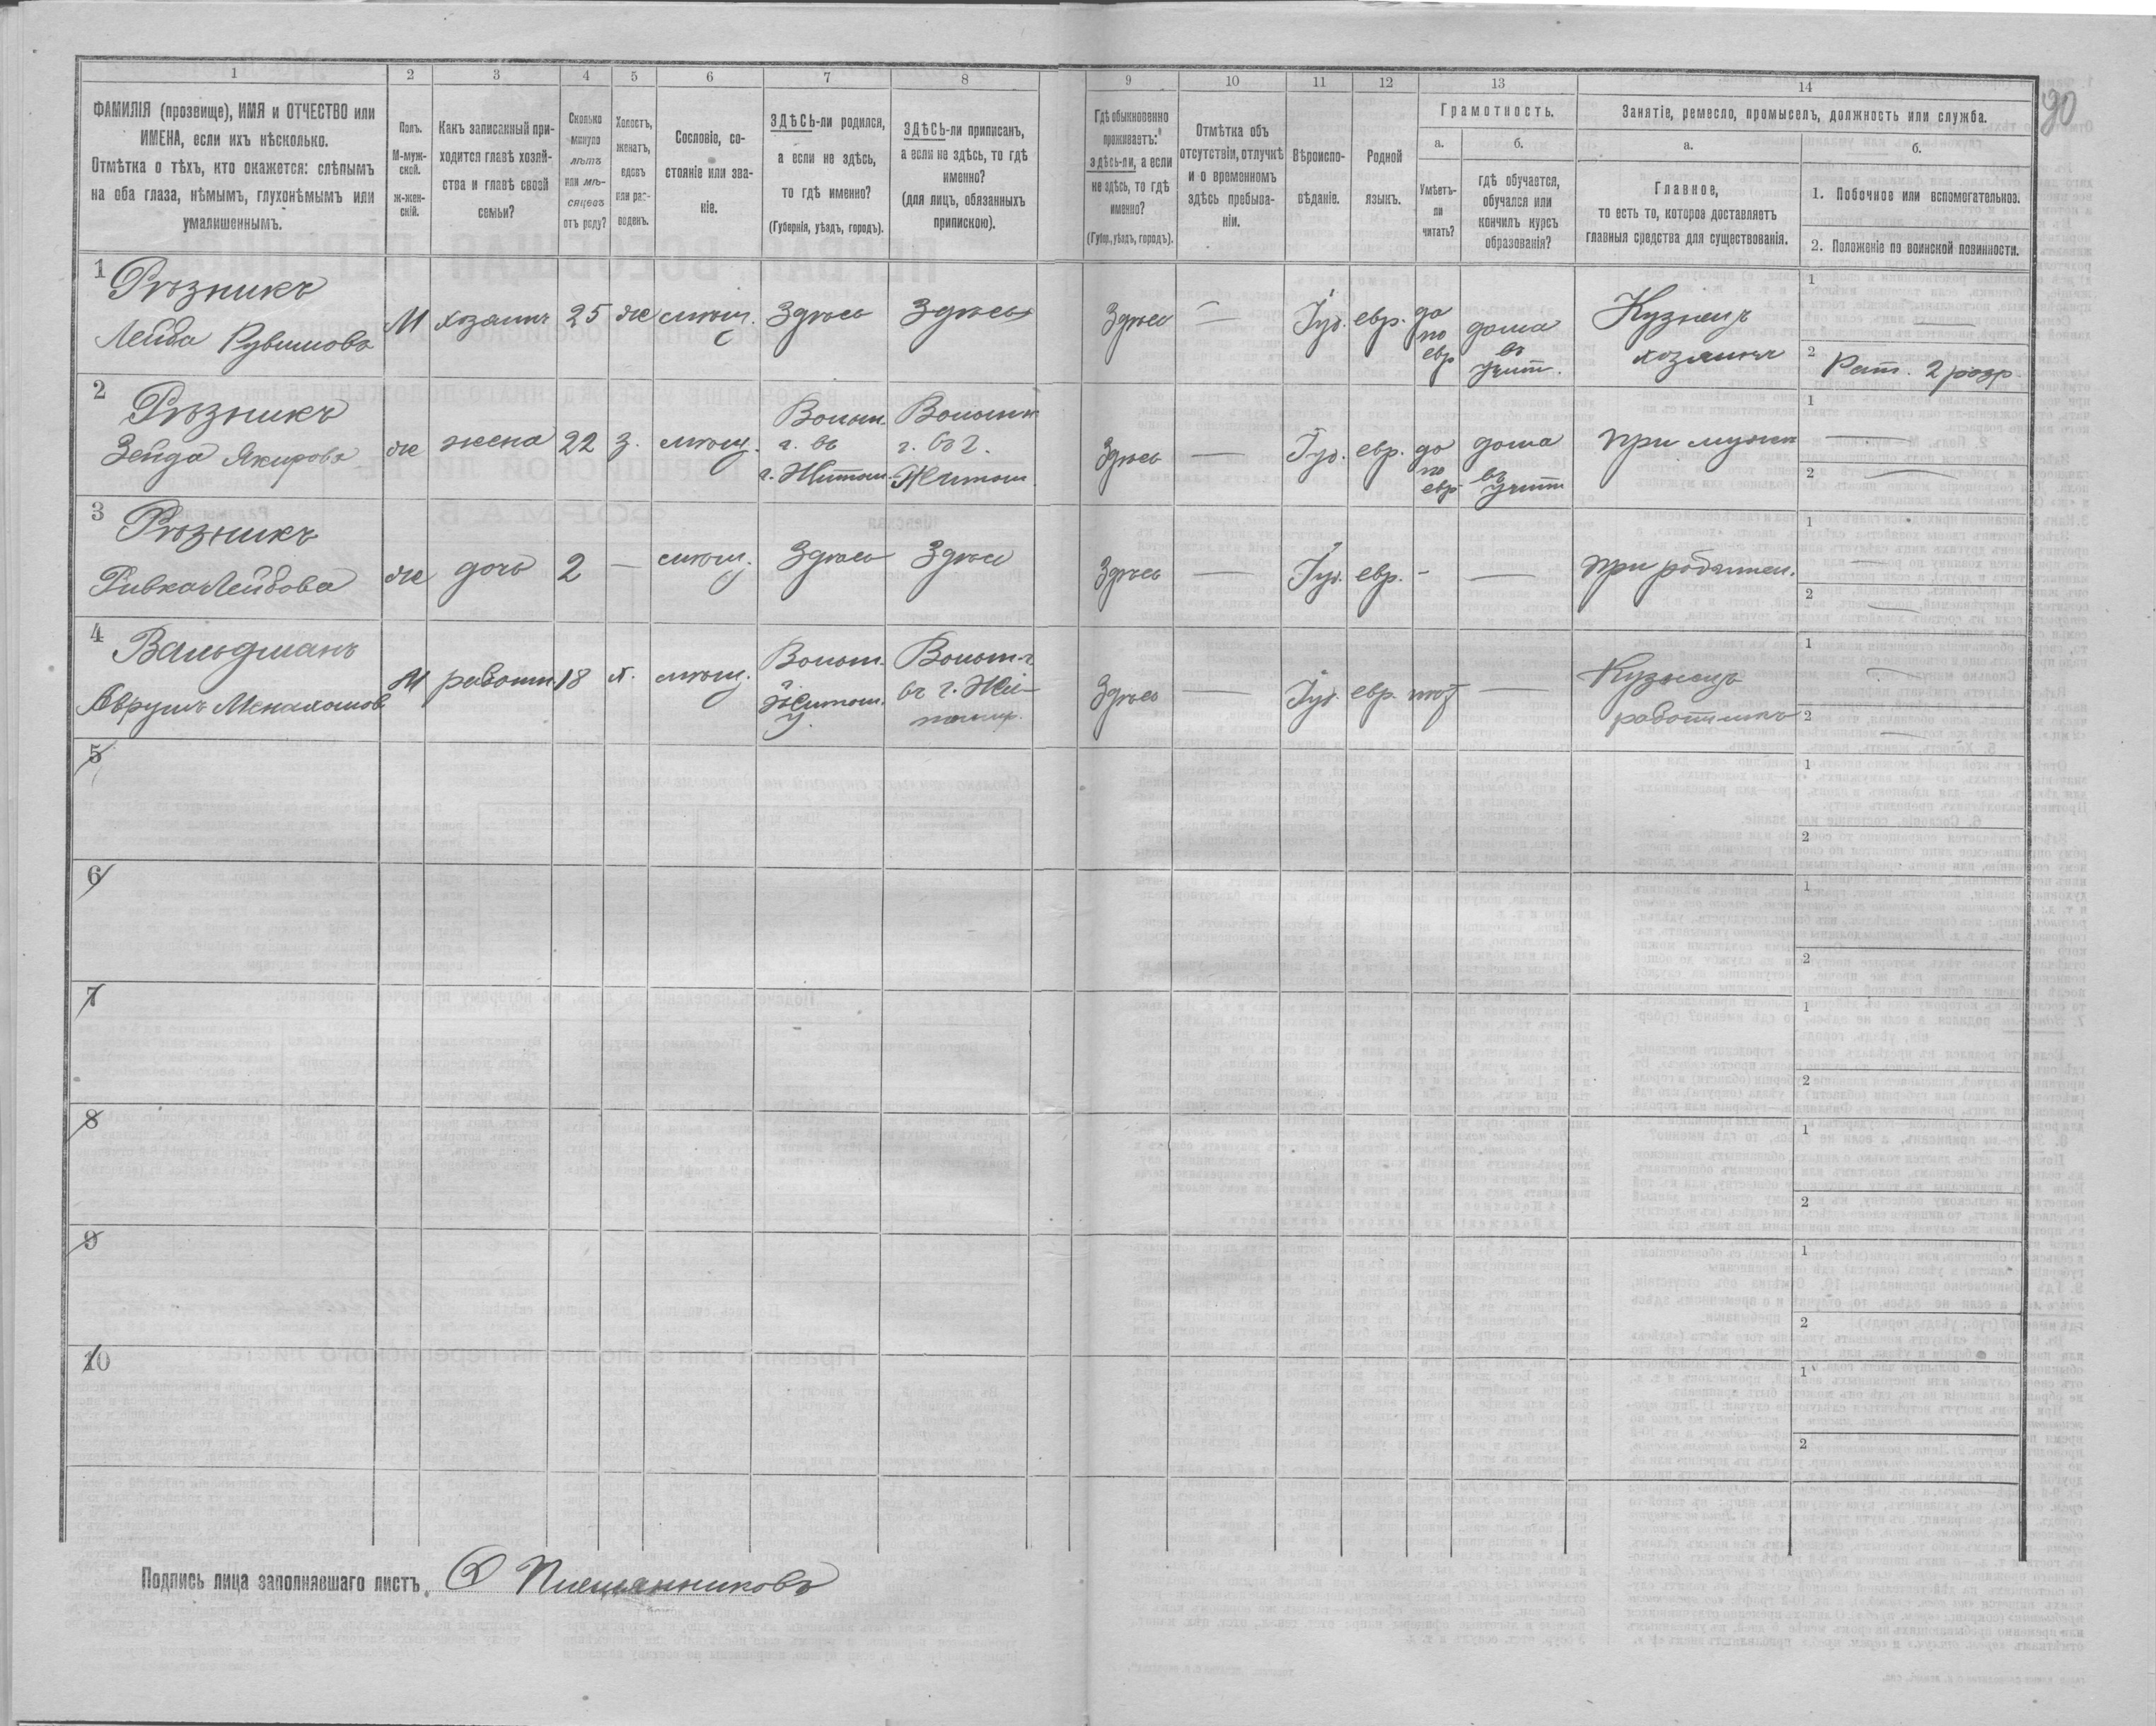 1 2 3 4 5 6 7 8 9 10 11 12 13 14
90
ФАМИЛІЯ (прозвище), ИМЯ и ОТЧЕСТВО или
ИМЕНА, если ихъ нѣсколько.
Отмѣтка о тѣхъ, кто окажется: слѣпымъ
на оба глаза, нѣмымъ, глухонѣмымъ или
умалишеннымъ.
Полъ.
М-муж-
ской.
ж-жен-
скій.
Какъ записанный при-
ходится главѣ хозяй-
ства и главѣ своей
семьи?
Сколько
минуло
лѣтъ
или мѣ-
сяцевъ
отъ роду?
Холостъ,
женатъ,
вдовъ
или раз-
веденъ.
Сословіе, со-
стояніе или зва-
ніе.
ЗДѢСЬ-ли родился,
а если не здѣсь,
то гдѣ именно?
(Губернія, уѣздъ, городъ).
ЗДѢСЬ-ли приписанъ,
а если не здѣсь, то гдѣ
именно?
(для лицъ, обязанныхъ
припискою).
Гдѣ обыкновенно
проживаетъ:
здѣсь-ли, а если
не здѣсь, то гдѣ
именно?
(Губер., уѣздъ, городъ).
Отмѣтка объ
отсутствіи, отлучкѣ
и о временномъ
здѣсь пребыва-
ніи.
Вѣроиспо-
вѣданіе.
Родной
языкъ.
Грамотность.
а.
Умѣетъ-
ли
читать?
б.
гдѣ обучается,
обучался или
кончилъ курсъ
образованія?
Занятіе, ремесло, промыселъ, должность или служба.
а.
Главное,
то есть то, которое доставляетъ
главныя средства для существованія.
б.
1. Побочное или вспомогательное.
2. Положеніе по воинской повинности.
1 Рѣзникъ
Лейба Рувимовъ
М хозяинъ 25 же мѣщ. Здѣсь Здѣсь Здѣсь — Іуд. евр. да
по
евр
дома
въ
учит.
Кузнецъ
хозяинъ
1 —
2 Рат. 2 разр.
2 Рѣзникъ
Зейда Якирова
же жена 22 з. мѣщ.
Волын.
г. въ
г. Житом.
Волынк
г. въ г.
Житом.
Здѣсь — Іуд. евр. да
по
евр.
дома
въ
учит
при мужѣ
1 —
2 —
3 Рѣзникъ
Ривка Лейбова
же дочь 2 — мѣщ. Здѣсь Здѣсь Здѣсь — Іуд. евр. - — при родител.
1 —
2 —
4 Вальдманъ
Аврумъ Менахомов
М работн. 18 х. мѣщ.
Волын.
г.
Житом.
у.
Волын г.
въ г. Жи-
томир.
Здѣсь — Іуд. евр. нѣт —
Кузнецъ
работникъ
1 —
2 —
5
1
2
6
1
2
7
1
2
8
1
2
9
1
2
10
1
2
Подпись лица заполнявшаго листъ.